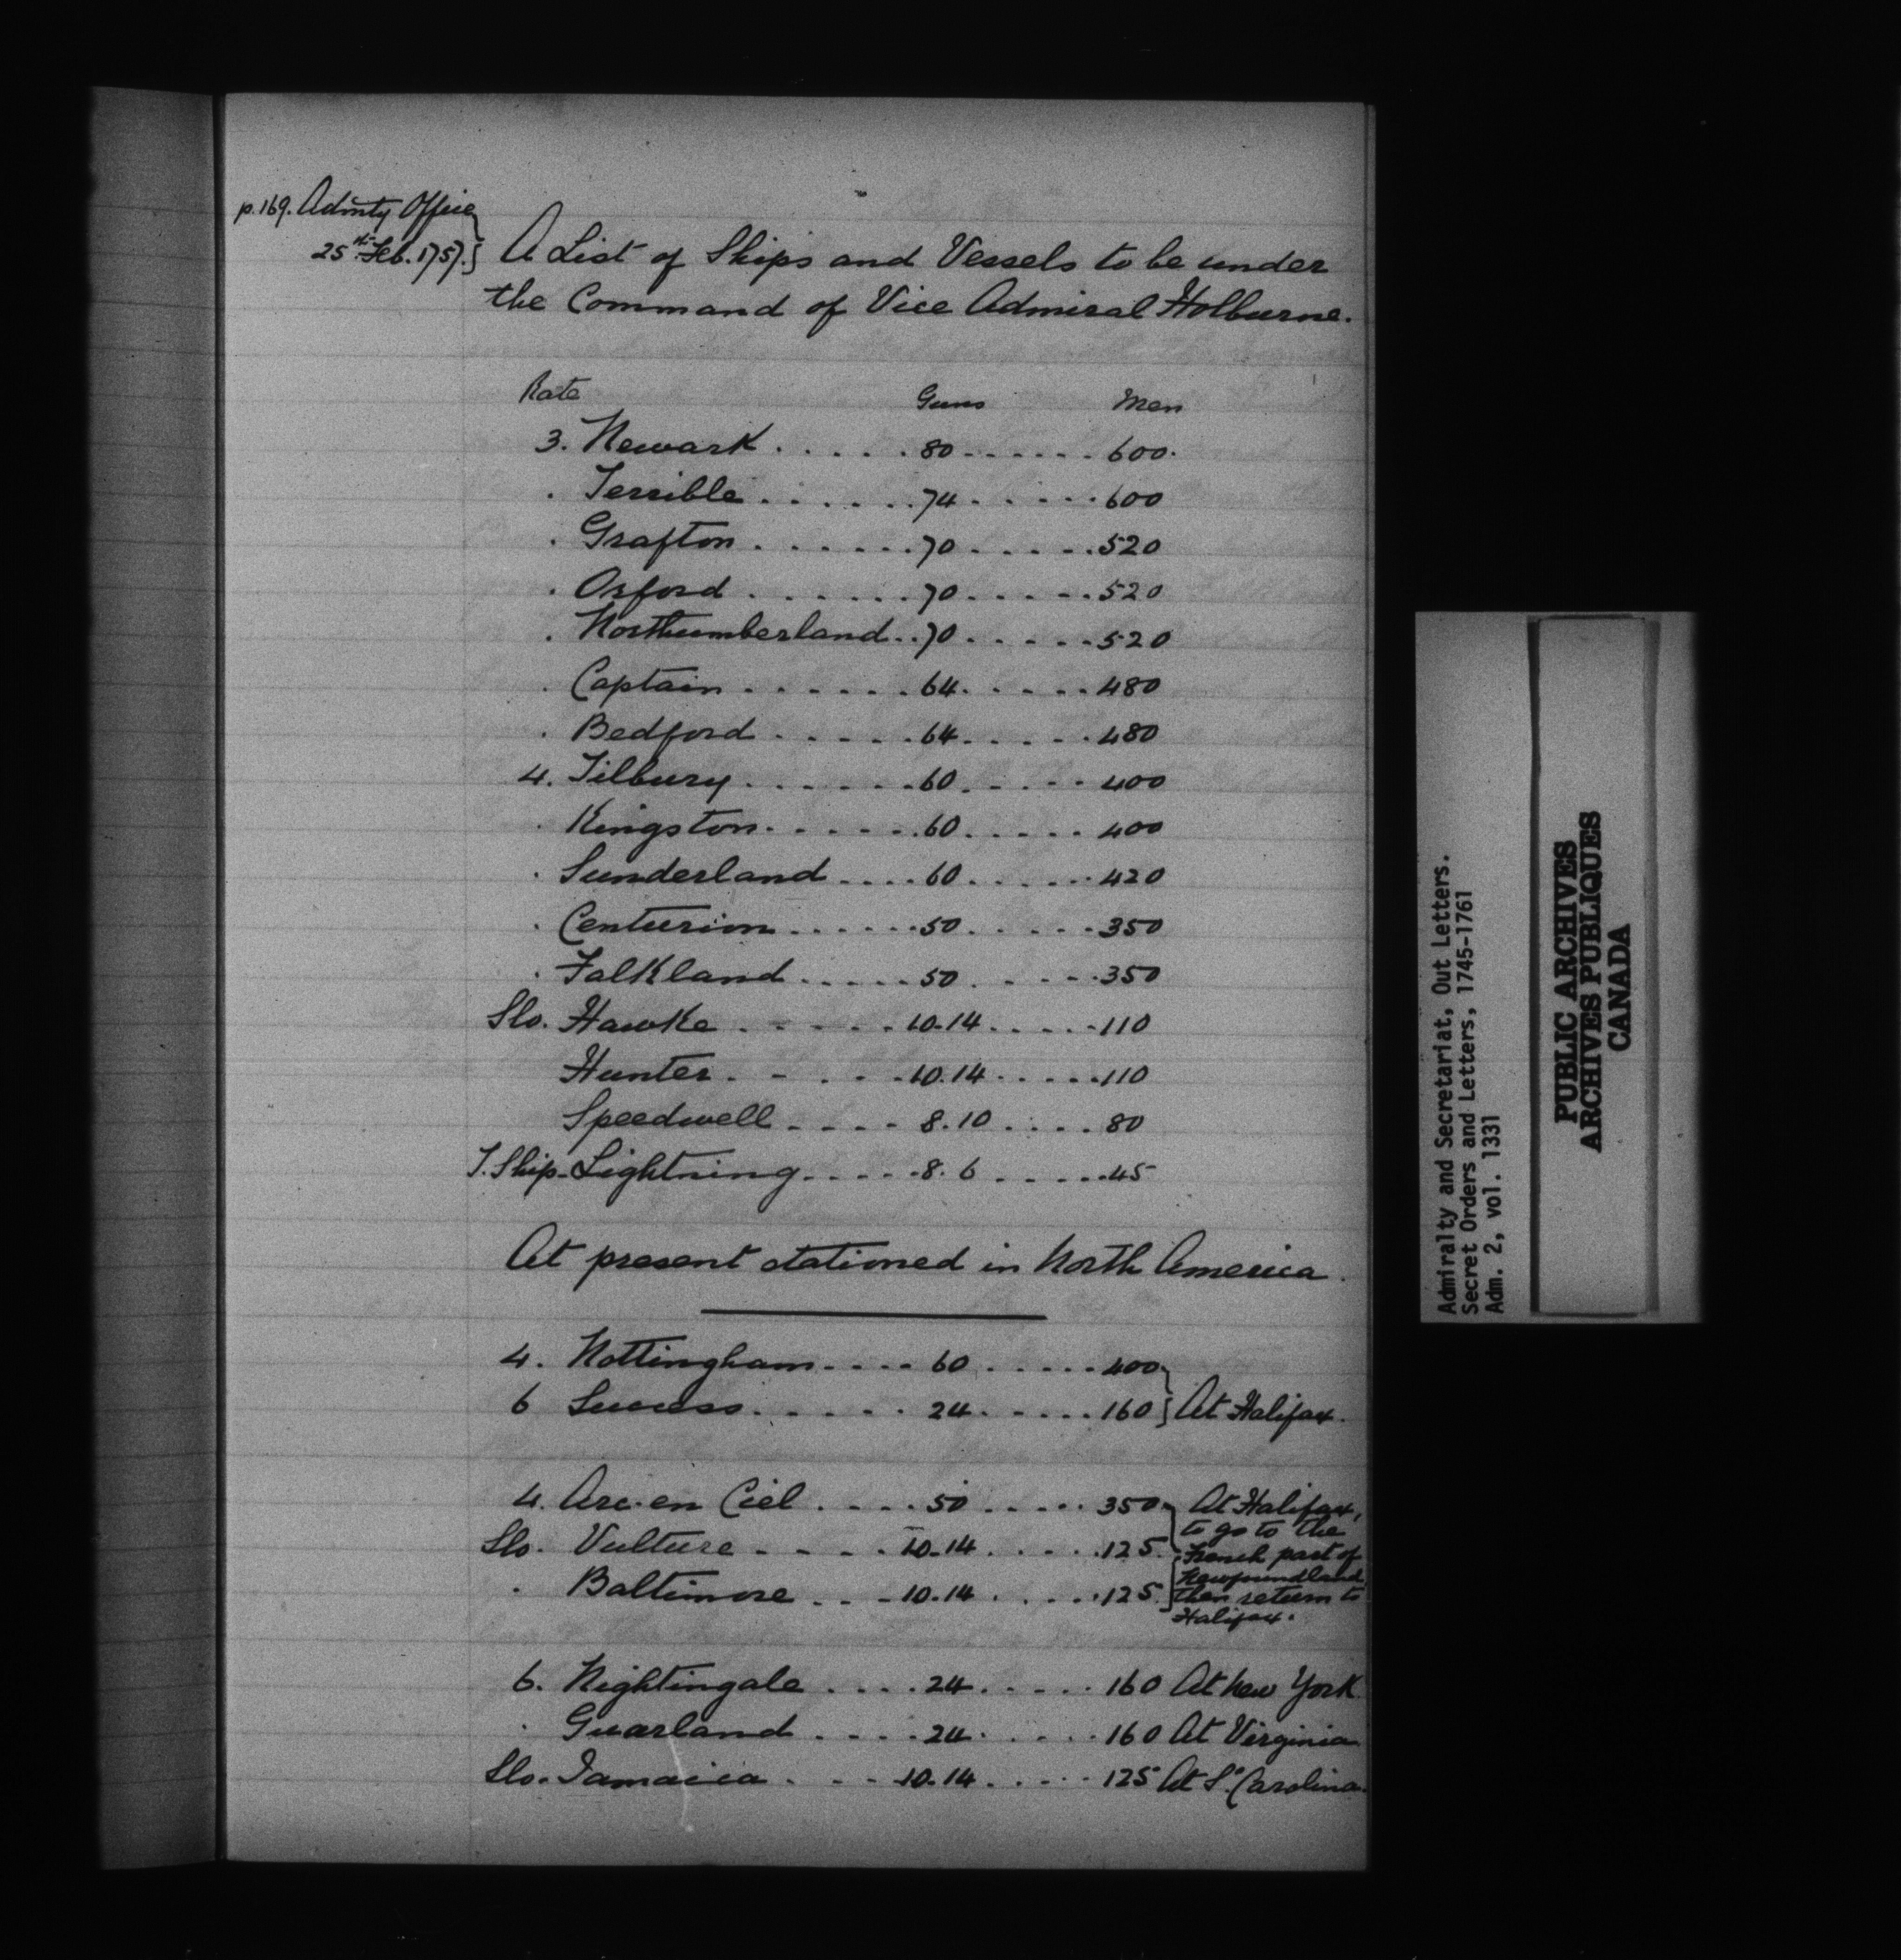 p.169. Admty Office
25th Feb. 1757. } A List of Ships and Vessels to be under
the Command of Vice Admiral Holburne.
Rate Guns Men
3. Newark . . . . . . 80 . . . . . . 600.
. Terrible . . . . . . . 74 . . . . . 600
. Grafton . . . . . . . 70 . . . . . . 520
. Oxford . . . . . . . 70 . . . . . . 520
. Northumberland . . 70 . . . . . . 520
. Captain . . . . . . . 64 . . . . . . 480
. Bedford . . . . . . 64 . . . . . . 480
4. Tilbury . . . . . . . 60 . . . . . 400
. Kingston . . . . . . . 60 . . . . . 400
. Sunderland . . . . 60 . . . . . . 420
. Centurion . . . . . . 50 . . . . . . 350
. Falkland . . . . . 50 . . . . . . 350
Slo. Hawke . . . . . . 10.14 . . . . . 110
Hunter . . . . . . 10.14 . . . . . 110
Speedwell . . . . 8.10 . . . . . 80
F. Ship - Lightning . . . . . 8.6 . . . . . 45
At present stationed in North America.
4. Nottingham . . . . 60 . . . . . . 400 }
6 Success . . . . . . 24 . . . . . 160 } At Halifax.
4. Arc. en Ciel . . . . 50 . . . . . 350 } At Halifax,
to go to the
Slo. Vulture . . . . . 10.14 . . . . . 125 } French part of
Newfoundland
. Baltimore . . . 10.14 . . . . . 125 } then return to
Halifax.
6. Nightingale . . . . 24 . . . . . 160 At New York
. Guarland . . . . 24 . . . . . 160 At Virginia
Slo. Jamaica . . . 10.14 . . . . . 125 At So. Carolina.
Admiralty and Secretariat, Out Letters.
Secret Orders and Letters, 1745-1761
Adm. 2, vol. 1331
PUBLIC ARCHIVES
ARCHIVES PUBLIQUES
CANADA